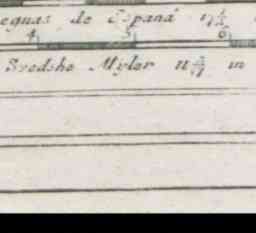 eguas de Espana 17 1/2
4 5 6
Svedske Mylor 11 in